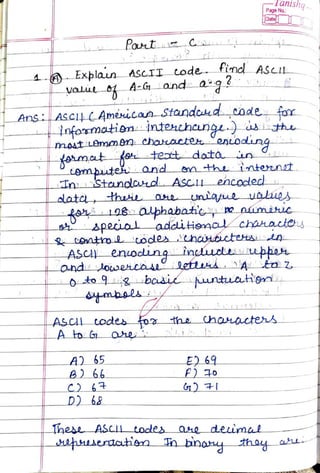 Tanishq
Page No.
Date
Part - C
1. (A). Explain ASCII code. Find ASCII
value of A-G and a-g?
Ans: ASCII (American Standard code for
information interchange.) is the
most common character encoding
format for text data in
computer and on the internet
In Standard ASCII encoded
data, there are unique values
for 128 alphabatic, numeric
or special additional characters
& control codes. Characters in
ASCII encoding include upper
and lowercase letters A to Z,
0 to 9 & basic puntuation
symbols.
ASCII codes for the characters
A to G are
A) 65 E) 69
B) 66 F) 70
C) 67 G) 71
D) 68
These ASCII codes are decimal
representation In binary they are: